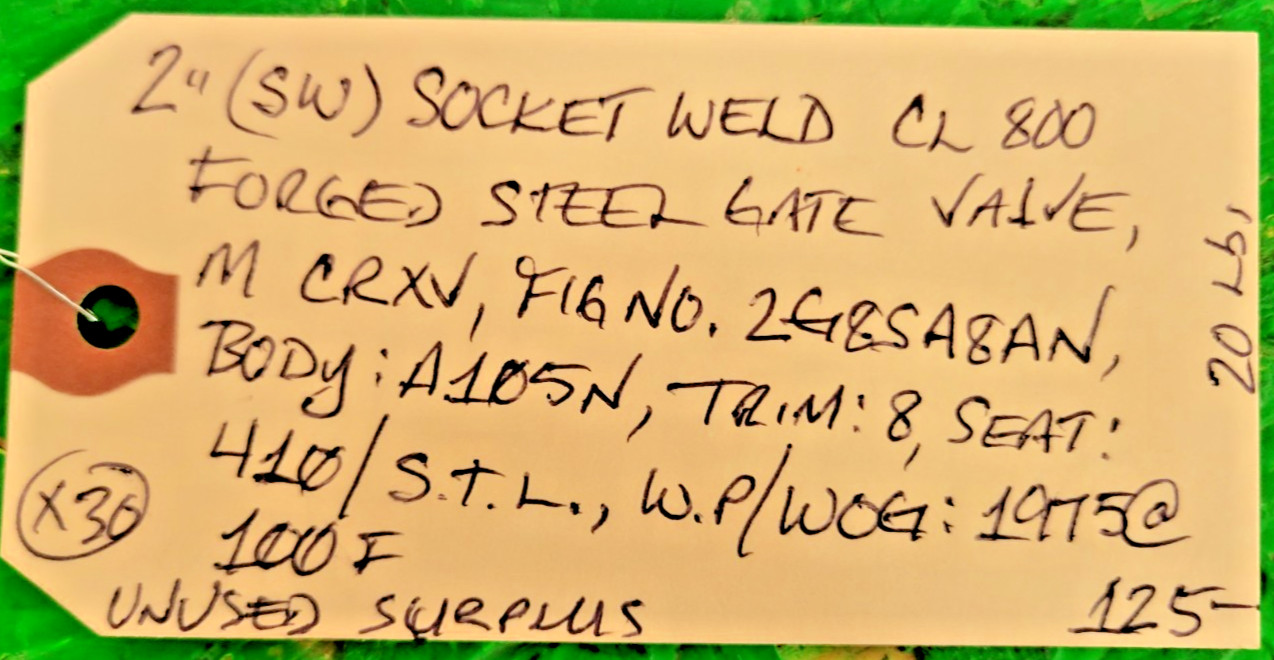 2" (SW) SOCKET WELD CL 800
FORGED STEEL GATE VALVE,
M CRXV, FIG NO. 2G8SA8AN,
BODY: A105N, TRIM: 8, SEAT:
410/S.T.L., W.P/WOG: 1975@
100 F
UNUSED SURPLUS
125-
X30
20 Lb,